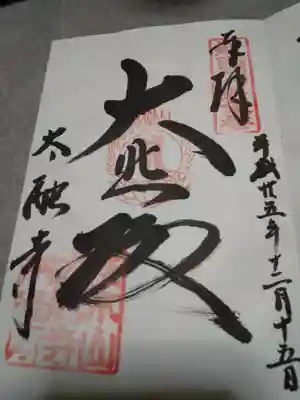 奉拝
平成廿五年十二月十五日
大悲殿
太融寺